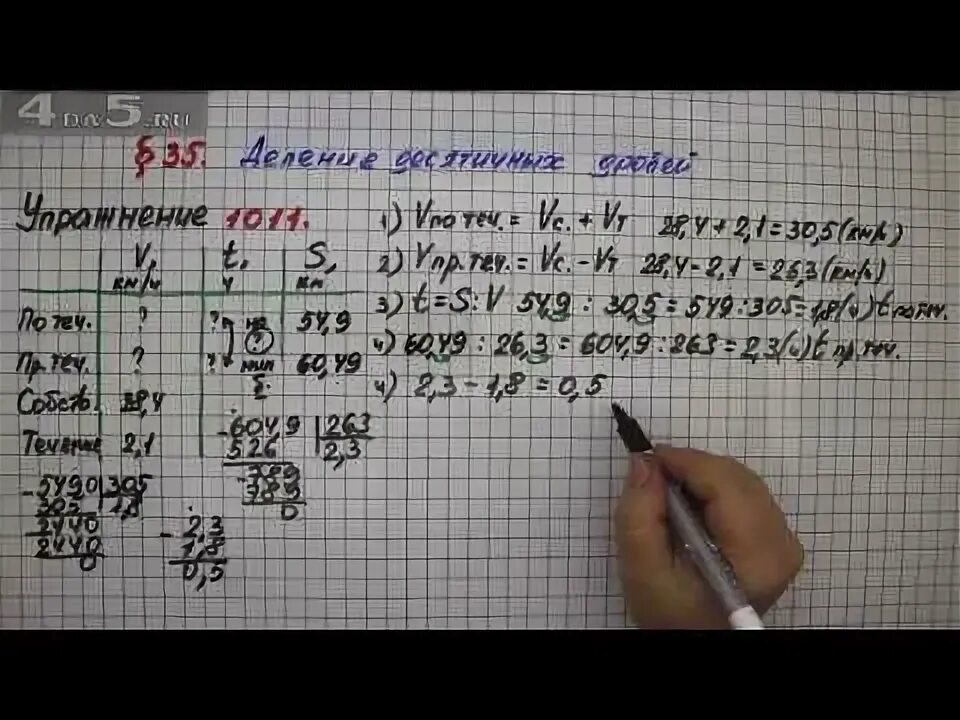 4 на 5.RU
§ 35. Деление десятичных дробей
Упражнение 1011.
V, км/ч t, ч S, км
По теч. ? ? на 54,9
Пр. теч. ? ? ? мин 60,49
Собств. 28,4
Течение 2,1
5490 305
305 1,8
2440
2440
0
- 2,3
1,8
0,5
- 604,9 263
526 2,3
- 789
789
0
1) Vпо теч. = Vс. + Vт 28,4 + 2,1 = 30,5 (км/ч)
2) Vпр. теч. = Vс. - Vт 28,4 - 2,1 = 26,3 (км/ч)
3) t = S : V 54,9 : 30,5 = 549 : 305 = 1,8 (ч) t по теч.
4) 60,49 : 26,3 = 604,9 : 263 = 2,3 (ч) t пр. теч.
4) 2,3 - 1,8 = 0,5